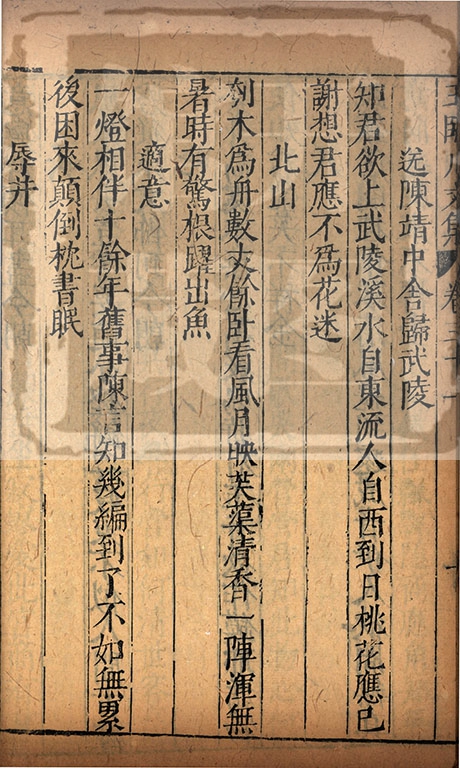 王臨川文集 卷三十一
送陳靖中舍歸武陵
知君欲上武陵溪水自東流人自西到日桃花應已
謝想君應不爲花迷
北山
刳木爲舟數丈餘卧看風月映芙蕖清香一陣渾無
暑時有驚根躍出魚
適意
一燈相伴十餘年舊事陳言知幾編到了不如無累
後困來顛倒枕書眠
辱井